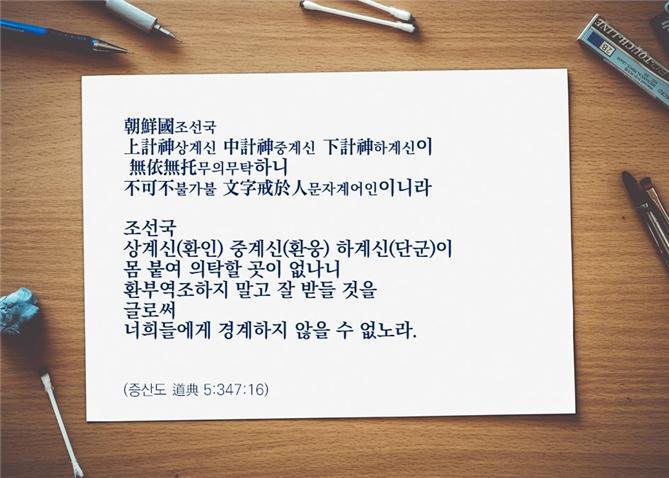 朝鮮國조선국
上計神상계신 中計神중계신 下計神하계신이
無依無托무의무탁하니
不可不불가불 文字戒於人문자계어인이니라
조선국
상계신(환인) 중계신(환웅) 하계신(단군)이
몸 붙여 의탁할 곳이 없나니
환부역조하지 말고 잘 받들 것을
글로써
너희들에게 경계하지 않을 수 없노라.
(증산도 道典 5:347:16)
2B